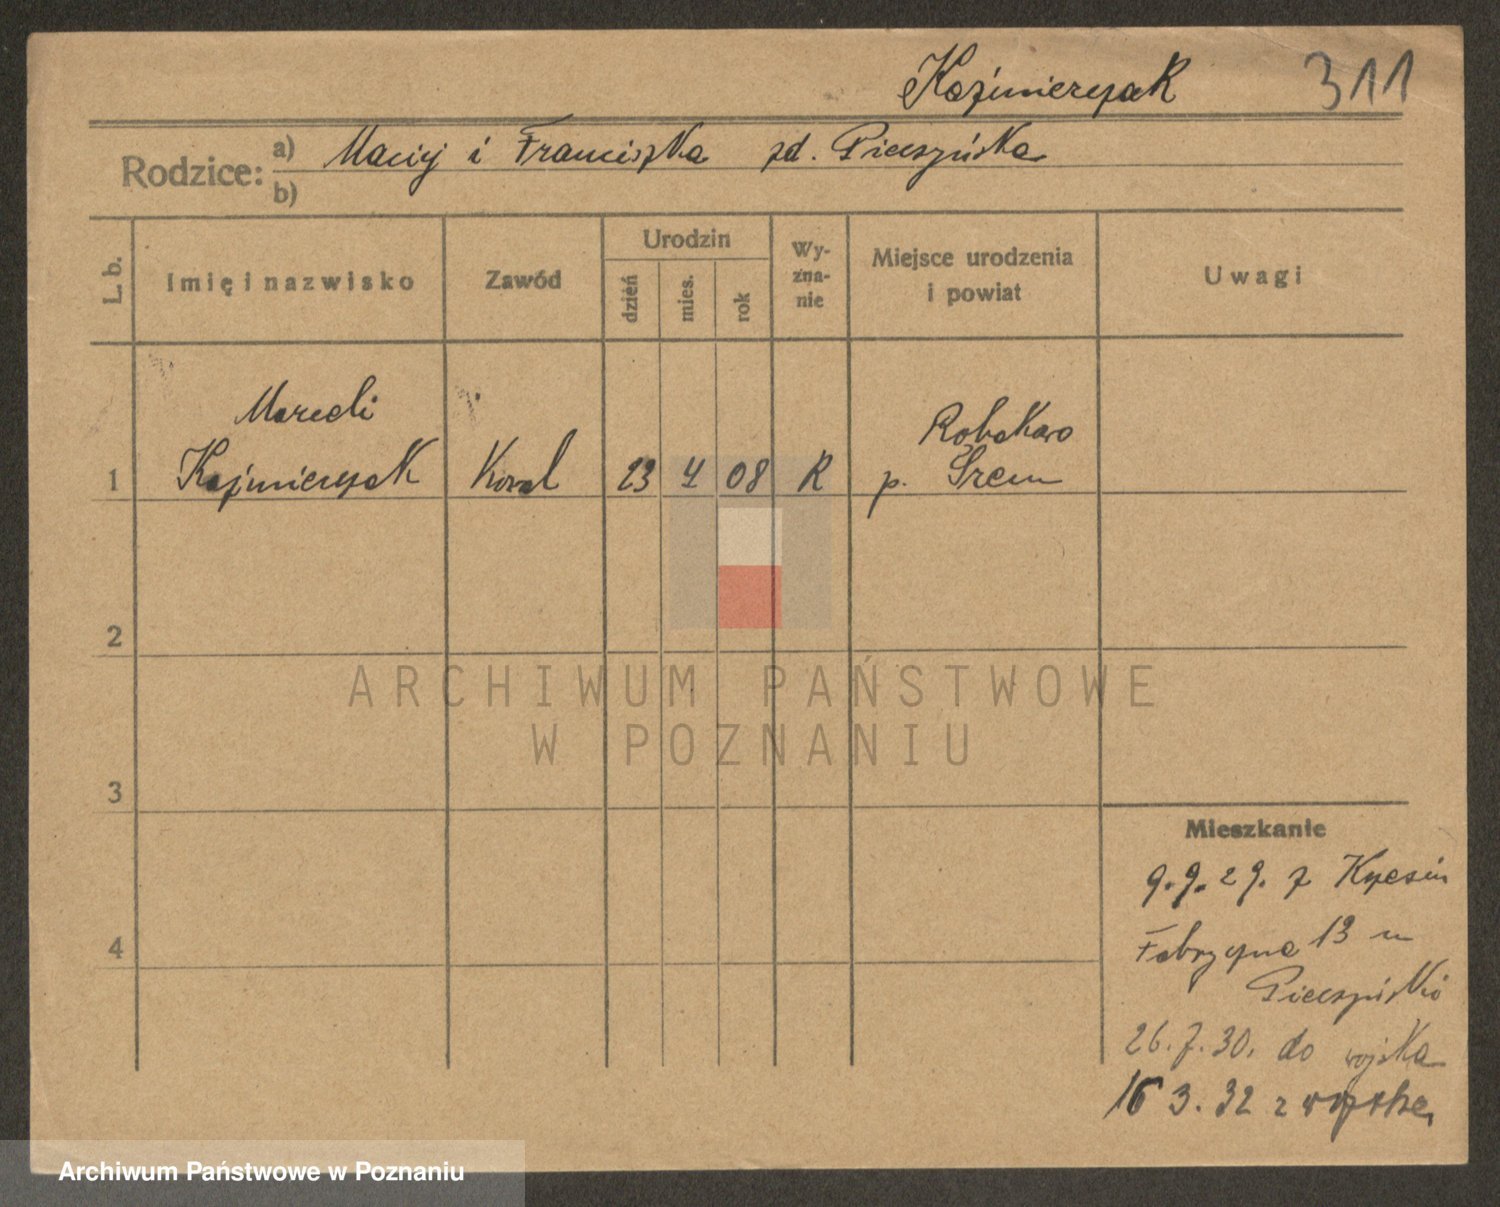 Kaźmierczak 311
Rodzice: a) Maciej i Franciszka zd. Pieczyńska
b)
L. b. Imię i nazwisko Zawód Urodzin dzień mies. rok Wyznanie Miejsce urodzenia i powiat Uwagi
Marceli
Robakowo
1 Kaźmierczak Kowal 23 4 08 R p. Śrem
2
ARCHIWUM PAŃSTWOWE
W POZNANIU
3
Mieszkanie
9.9.29. z
4
Fabryczna 13 m
26.7.30. do wojska
16 3. 32 z wojska
Archiwum Państwowe w Poznaniu